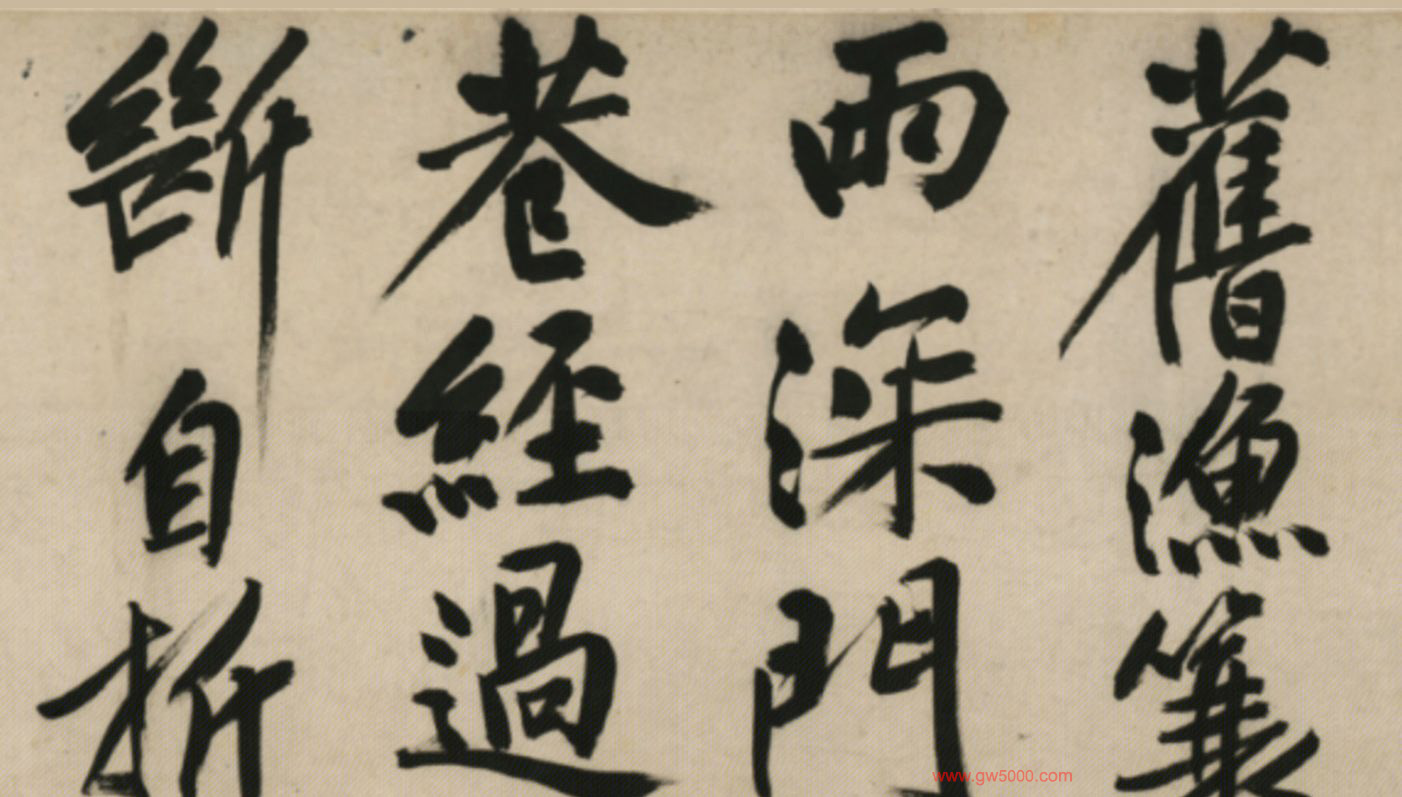 舊漁蓑
雨深門
巷經過
斷自折
www.gw5000.com